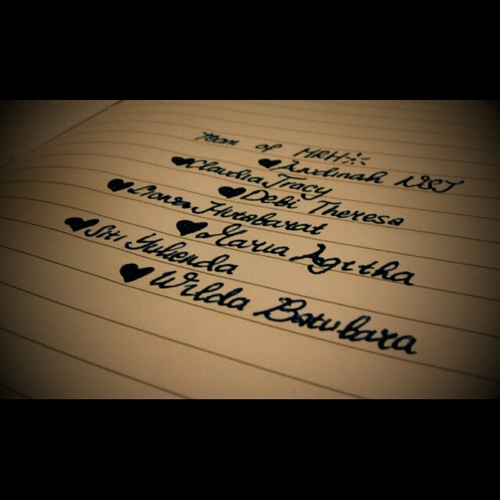 Team of HRH
♥ Andinah NST
♥ Claudia Tracy
♥ Debi Theresa
♥ Hutabarat
♥ Maria Agitha
♥ Siti Yulienda
♥ Wilda Batubara